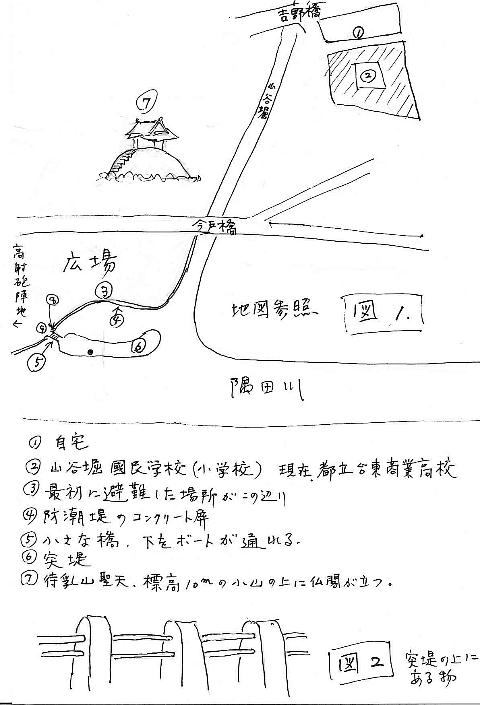 吉野橋
①
②
山谷堀
⑦
今戸橋
高射砲陣地
←
広場
③
④
④
⑤
⑥
地図参照
図1.
隅田川
① 自宅
② 山谷堀國民学校(小学校) 現在、都立台東商業高校
③ 最初に避難した場所がこの辺り
④ 防潮堤のコンクリート塀
⑤ 小さな橋、下をボートが通れる。
⑥ 突堤
⑦ 待乳山聖天、標高10mの小山の上に仏閣が立つ。
図2
突堤の上に
ある物